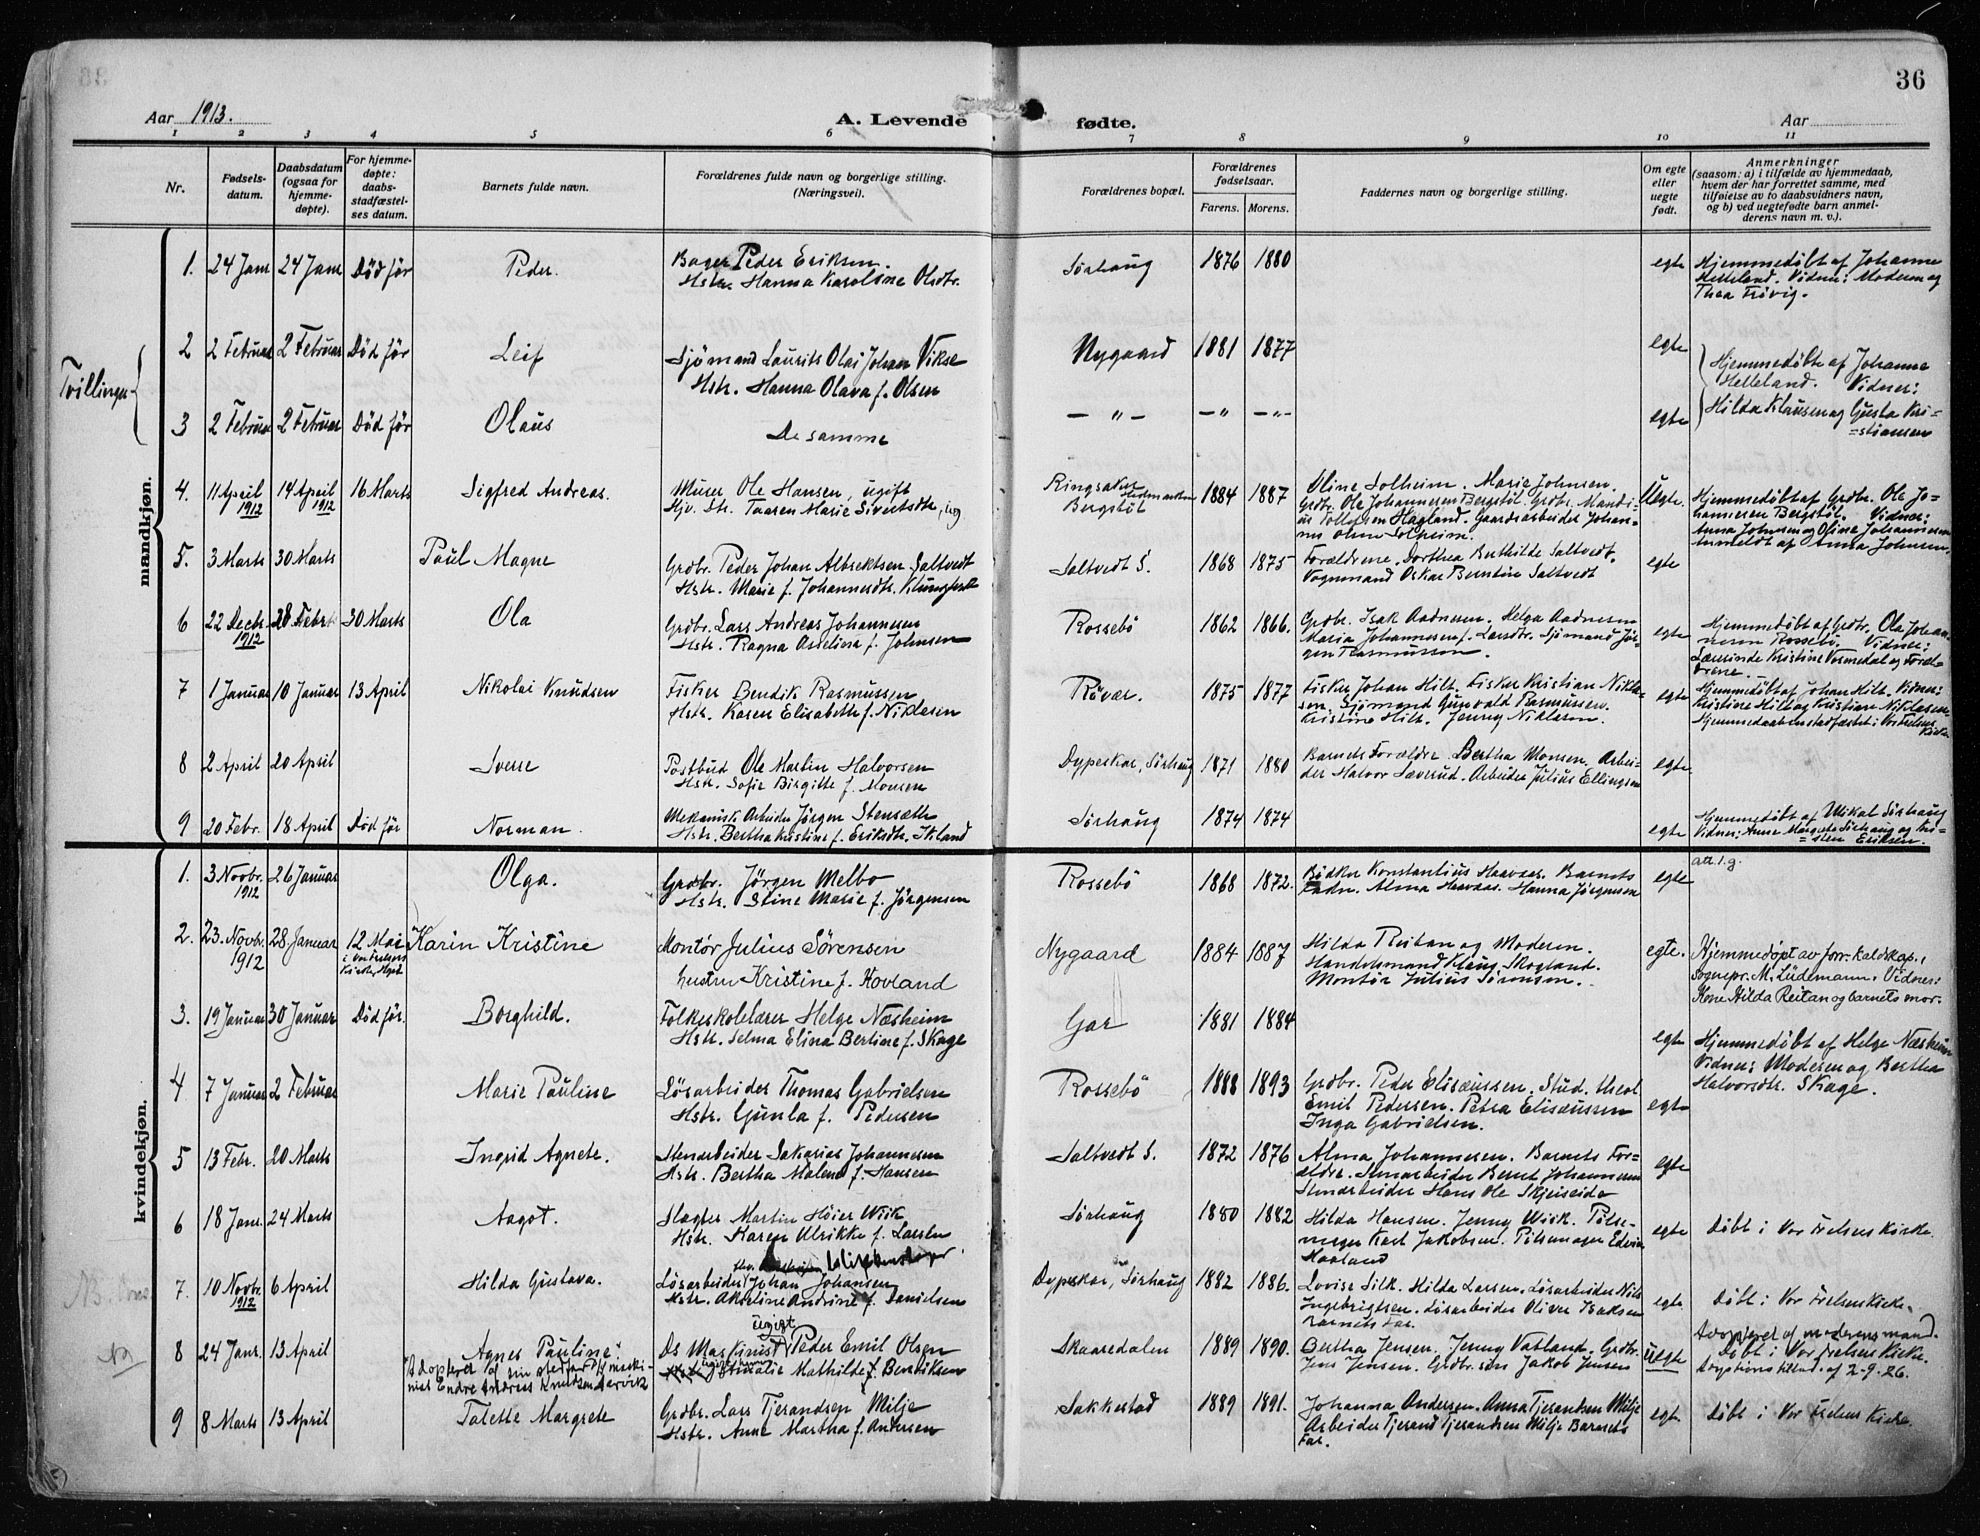 36
Aar 1913.
A. Levende fødte.
Aar
1 2 3 4 5 6 7 8 9 10 11
Nr.
Fødsels-
datum.
Daabsdatum
(ogsaa for
hjemme-
døpte).
For hjemme-
døpte:
daabs-
stadfæstel-
ses datum.
Barnets fulde navn.
Forældrenes fulde navn og borgerlige stilling.
(Næringsvei).
Forældrenes bopæl.
Forældrenes
fødselsaar.
Farens. Morens.
Faddernes navn og borgerlige stilling.
Om egte
eller
uegte
født.
Anmerkninger
(saasom: a) i tilfælde av hjemmedaab,
hvem der har forrettet samme, med
tilføielse av to daabsvidners navn,
og b) ved uegtefødte barn anmel-
derens navn m. v.).
mandkjøn.
1. 24 Janr 24 Janr Død før Peder.
Bager Peder Eriksen.
Hstr. Hanna Karoline Olsdtr.
Sørhaug 1876 1880 egte
Hjemmedøbt af Johanne
Helleland. Vidner: Moderen og
Thea Frøvig.
Tvillinger
2 2 Februar 2 Februar Død før Leif
Sjømand Laurits Olai Johan Vikse
Hstr. Hanna Olava f. Olsen
Nygaard 1881 1877 egte
Hjemmedøbt af Johanne
Helleland. Vidner:
Hilda Klausen og Gusta Kri=
=stiansen
3 2 Februar 2 Februar Død før Olaus
De samme
— " — — " — — " — egte
4. 11 April 1912 14 April 1912 16 Marts Sigfred Andreas.
Murer Ole Hansen, ugift
Hjv. Str. Taaren Marie Sivertsdtr, ug
Ringsaker Hedmarken
Bergstøl
1884 1887
Oline Solheim. Marie Johnsen.
Grdbr. Ole Johannesen Bergstøl. Grdbr. Mandi-
us Tollefsen Hagland. Gaardsarbeider Johan-
nes Olsen Solheim.
Uegte.
Hjemmedøbt af Grdbr. Ole Jo=
hannesen Bergstøl. Vidner:
Anna Johnsen og Oline Johannesen
Anmeldt af Anna Johnsen.
5. 3 Marts 30 Marts Paul Magne
Grdbr. Peder Johan Albrektsen Saltvedt
Hstr. Marie f. Johannesdtr. Klungland
Saltvedt S. 1868 1875
Forældrene. Dorthea Berthilde Saltvedt.
Vognmand Oskar Berntin Saltvedt
egte
6 22 Decbr. 1912 28 Febr 30 Marts Ola
Grdbr. Lars Andreas Johannesen
Hstr. Ragna Asteline f. Johnsen
Rossebø 1862 1866.
Grdbr. Isak Aadnesen. Helga Aadnesen
Maria Johannesen f. Larsdtr. Sjømand Jør-
gen Rasmussen.
egte
Hjemmedøbt af Grdbr. Ola Johan-
nesen Rossebø. Vidner:
Lærerinde Kristine Vormedal og Foræl-
drene.
7 1 Januar 10 Januar 13 April Nikolai Knudsen
Fisker Bendik Rasmussen
Hstr. Karen Elisabeth f. Niklasen
Røvær. 1875 1877
Fisker Johan Hilt. Fisker Kristian Nikla-
sen. Sjömand Gunvald Rasmussen.
Kristine Hilt. Jenny Niklasen.
egte
Hjemmedøbt af Johan Hilt. Vidner:
Kristine Hilt og Kristian Niklasen.
Hjemmedaaben stadfæstet i Vor Frelsers
Kirke
8 2 April 20 April Sverre
Postbud Ole Martin Halvorsen
Hstr. Sofie Birgitte f. Monsen
Dypeskar, Sørhaug 1871 1880
Barnets Forældre. Bertha Monsen. Arbei-
der Halvor Sæverud. Arbeider Julius Ellingsen
egte
9 20 Febr. 18 April Død før Norman.
Mekanisk Arbeider Jørgen Stensæth
Hstr. Bertha Kristine f. Eriksdtr. Ikland
Sørhaug 1874 1874 egte
Hjemmedøbt af Mikal Sørhaug
Vidner: Anne Margrete Sørhaug og Kri-
=sten Eriksen.
kvindekjøn.
1. 3 Novbr. 1912 26 Januar Olga.
Grdbr. Jörgen Melbo
Hstr. Stine Marie f. Jörgensen
Rossebö 1868 1872.
Bødker Konstantius Haavaas. Barnets
Fader. Alma Haavaas. Hanna Jørgensen
egte
att. l. g.
2. 23. Novbr. 1912 28 Januar 12 Mai
i Vor Frelsers
Kirke, Hgsd.
Karin Kristine
Montør Julius Sörensen
hustru Kristine f. Hovland
Nygaard 1884 1887
Hilda Reitan og Moderen.
Handelsmand Klaus Skogland.
Montør Julius Sørensen.
egte.
Hjemmedøpt av forr. kaldskap.,
Sognepr. M. Lüdemann. Vidner:
Kone Hilda Reitan og barnets mor.
3. 19 Januar 30 Januar Død før. Borghild.
Folkeskolelærer Helge Næsheim
Hstr. Selma Elina Bertine f. Skage
Gar 1881 1884 egte
Hjemmedøbt af Helge Næsheim
Vidner: Moderen og Bertha
Halvorsdtr. Skage.
4 7 Januar 2 Februar Marie Pauline
Løsarbeider Thomas Gabrielsen
Hstr. Gunla f. Pedersen
Rossebö 1888 1893
Grdbr. Peder Elisæussen. Stud. theol
Emil Pedersen. Petra Elisæussen
Inga Gabrielsen.
egte
5 13 Febr. 20 Marts Ingrid Agnete.
Stenarbeider Sakarias Johannesen
Hstr. Bertha Malene f. Hansen
Saltvedt S. 1872 1876
Alma Johannesen. Barnets For=
ældre. Stenarbeider Bernt Johannesen
Stenarbeider Hans Ole Skjeiseide
egte
6 18 Janr. 24 Marts Aagot.
Slagter Martin Höier Wiik
Hstr. Karen Ulrikke f. Larsen
Sørhaug 1880 1882
Hilda Hansen. Jenny Wiik. Pölse-
mager Karl Jakobsen. Pølsemager Edvin
Haaland
egte
Døbt i Vor Frelsers Kirke.
7. 10 Novbr. 1912 6 April Hilda Gustava.
Løsarbeider Johan Johansen
Hstr. Akseline Andrine f. Danielsen
Dypeskar, Sørhaug 1882 1886.
Lovise Silk. Hilda Larsen. Løsarbeider Nils
Ingebrigtsen. Løsarbeider Oliver Isaksen
Barnets Far.
egte
Døbt i Vor Frelsers Kirke.
8 24 Janr. 13 April Agnes Pauline
"Adopteret af sin stedfar maski-
nist Endre Andreas Knudsen Aarvik
ugift
Ds Maskinist Peder Emil Olsen
Amalie Mathilde f. Bentiksen
Skaaredalen 1889 1890.
Bertha Jensen. Jenny Vatland. Grdbr.
Jens Jensen. Grdbr. søn Jakob Jensen
uegte
Adopteret af moderens mand.
Döbt i Vor Frelsers Kirke.
Adoptionstillad. af 2-9-26.
9 8 Marts 13 April Talette Margrete
Grdbr. Lars Tjerandsen Milje
Hstr. Anne Martha f. Andersen
Sakkestad 1889 1891.
Johanna Andersen. Anna Tjerandsen Milje
Arbeider Tjerand Tjerandsen Milje Barnets
Far.
egte
Døbt i Vor Frelsers Kirke.